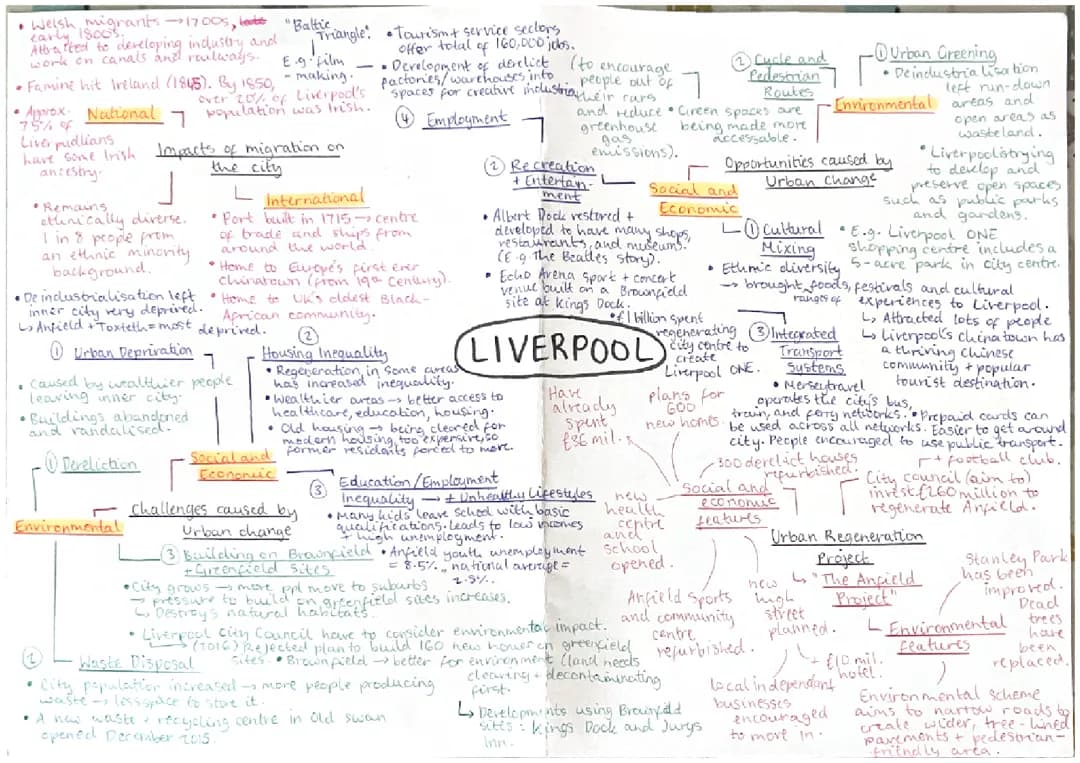 LIVERPOOL
Impacts of migration on
the city
National
• Welsh migrants → 1700s,
early 1800s.
Attracted to developing industry and
work on canals and railways.
• Famine hit Ireland (1845). By 1850,
over 20% of Liverpool's
population was Irish.
• Approx.
75% of
Liverpudlians
have some Irish
ancestry.
• Remains
ethnically diverse.
1 in 8 people from
an ethnic minority
background.
International
• Port built in 1715 → centre
of trade and ships from
around the world.
• Home to Europe's first ever
chinatown (from 19th Century).
• Home to UK's oldest Black-
African community.
"Baltic
Triangle".
E.g. film
- making.
• Tourism + service sectors
offer total of 160,000 jobs.
• Development of derelict
factories/warehouses into
spaces for creative industries
④ Employment
② Recreation
+ Entertain-
ment
• Albert Dock restored +
developed to have many shops,
restaurants, and museums.
(E.g. The Beatles story).
• Echo Arena sport + concert
venue built on a Brownfield
site at Kings Dock.
• £1 billion spent
regenerating
city centre to
create
Liverpool ONE.
Opportunities caused by
Urban Change
Social and
Economic
Environmental
② Cycle and
Pedestrian
Routes
(to encourage
people out of
their cars
and reduce
greenhouse
gas
emissions).
• Green spaces are
being made more
accessable.
① Urban Greening
• Deindustrialisation
left run-down
areas and
open areas as
wasteland.
• Liverpool is trying
to develop and
preserve open spaces
such as public parks
and gardens.
• E.g. Liverpool ONE
shopping centre includes a
5-acre park in city centre.
① Cultural
Mixing
• Ethnic diversity
→ brought foods, festivals and cultural
ranges of experiences to Liverpool.
↳ Attracted lots of people
↳ Liverpool's chinatown has
a thriving chinese
community + popular
tourist destination.
③ Integrated
Transport
Systems
• Merseytravel
operates the city's bus,
train, and ferry networks. • Prepaid cards can
be used across all networks. Easier to get around
city. People encouraged to use public transport.
• Deindustrialisation left
inner city very deprived.
↳ Anfield + Toxteth = most deprived.
① Urban Deprivation
• Caused by wealthier people
leaving inner city.
• Buildings abandoned
and vandalised.
②
Housing Inequality
• Regeneration in some areas
has increased inequality.
• Wealthier areas → better access to
healthcare, education, housing.
• Old housing → being cleared for
modern housing, too expensive, so
former residents forced to move.
Social and
Economic
③ Education/Employment
Inequality → + Unhealthy Lifestyles
• Many kids leave school with basic
qualifications. Leads to low incomes
+ high unemployment.
• Anfield youth unemployment
= 8.5%, national average =
2.9%.
① Dereliction
Environmental
Challenges caused by
Urban change
③ Building on Brownfield
+ Greenfield Sites
• City grows → more ppl move to suburbs
pressure to build on greenfield sites increases.
↳ Destroys natural habitats.
• Liverpool City Council have to consider environmental impact.
↳ (2016) Rejected plan to build 160 new houses on greenfield
sites. • Brownfield → better for environment (land needs
clearing + decontaminating
first.
↳ Developments using Brownfield
sites: Kings Dock and Jurys
Inn.
② Waste Disposal
• City population increased → more people producing
waste → less space to store it.
• A new waste + recycling centre in Old Swan
opened December 2015.
Urban Regeneration
Project
↳ "The Anfield
Project"
Social and
economic
features
Have
already
spent
£36 mil.
plans for
600
new homes.
300 derelict houses
refurbished.
+ football club.
City council (aim to)
invest £260 million to
regenerate Anfield.
new
health
centre
and
school
opened.
Anfield Sports
and community
centre
refurbished.
new
high
street
planned.
+ £10 mil.
hotel.
local independent
businesses
encouraged
to move in.
↳ Environmental
features
Stanley Park
has been
improved.
Dead
trees
have
been
replaced.
Environmental scheme
aims to narrow roads to
create wider, tree-lined
pavements + pedestrian-
friendly area.